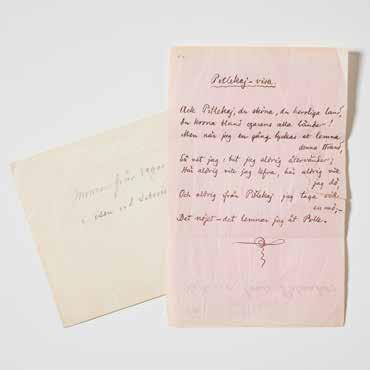 Pitlekaj-visa.
Ack Pitlekaj, du sköna, du herrliga land,
du krona bland egarens alla länder!
Men när jag en gång lyckas at lemna
denna strand,
Så vet jag, hit jag aldrig återvänder;
Här aldrig vill jag lefva, här aldrig vill
jag dö,
Och aldrig från Pitlekaj jag taga vill
en mö,-
Det nöjet - det lemnar jag åt Polle.
från Vega
isen vid